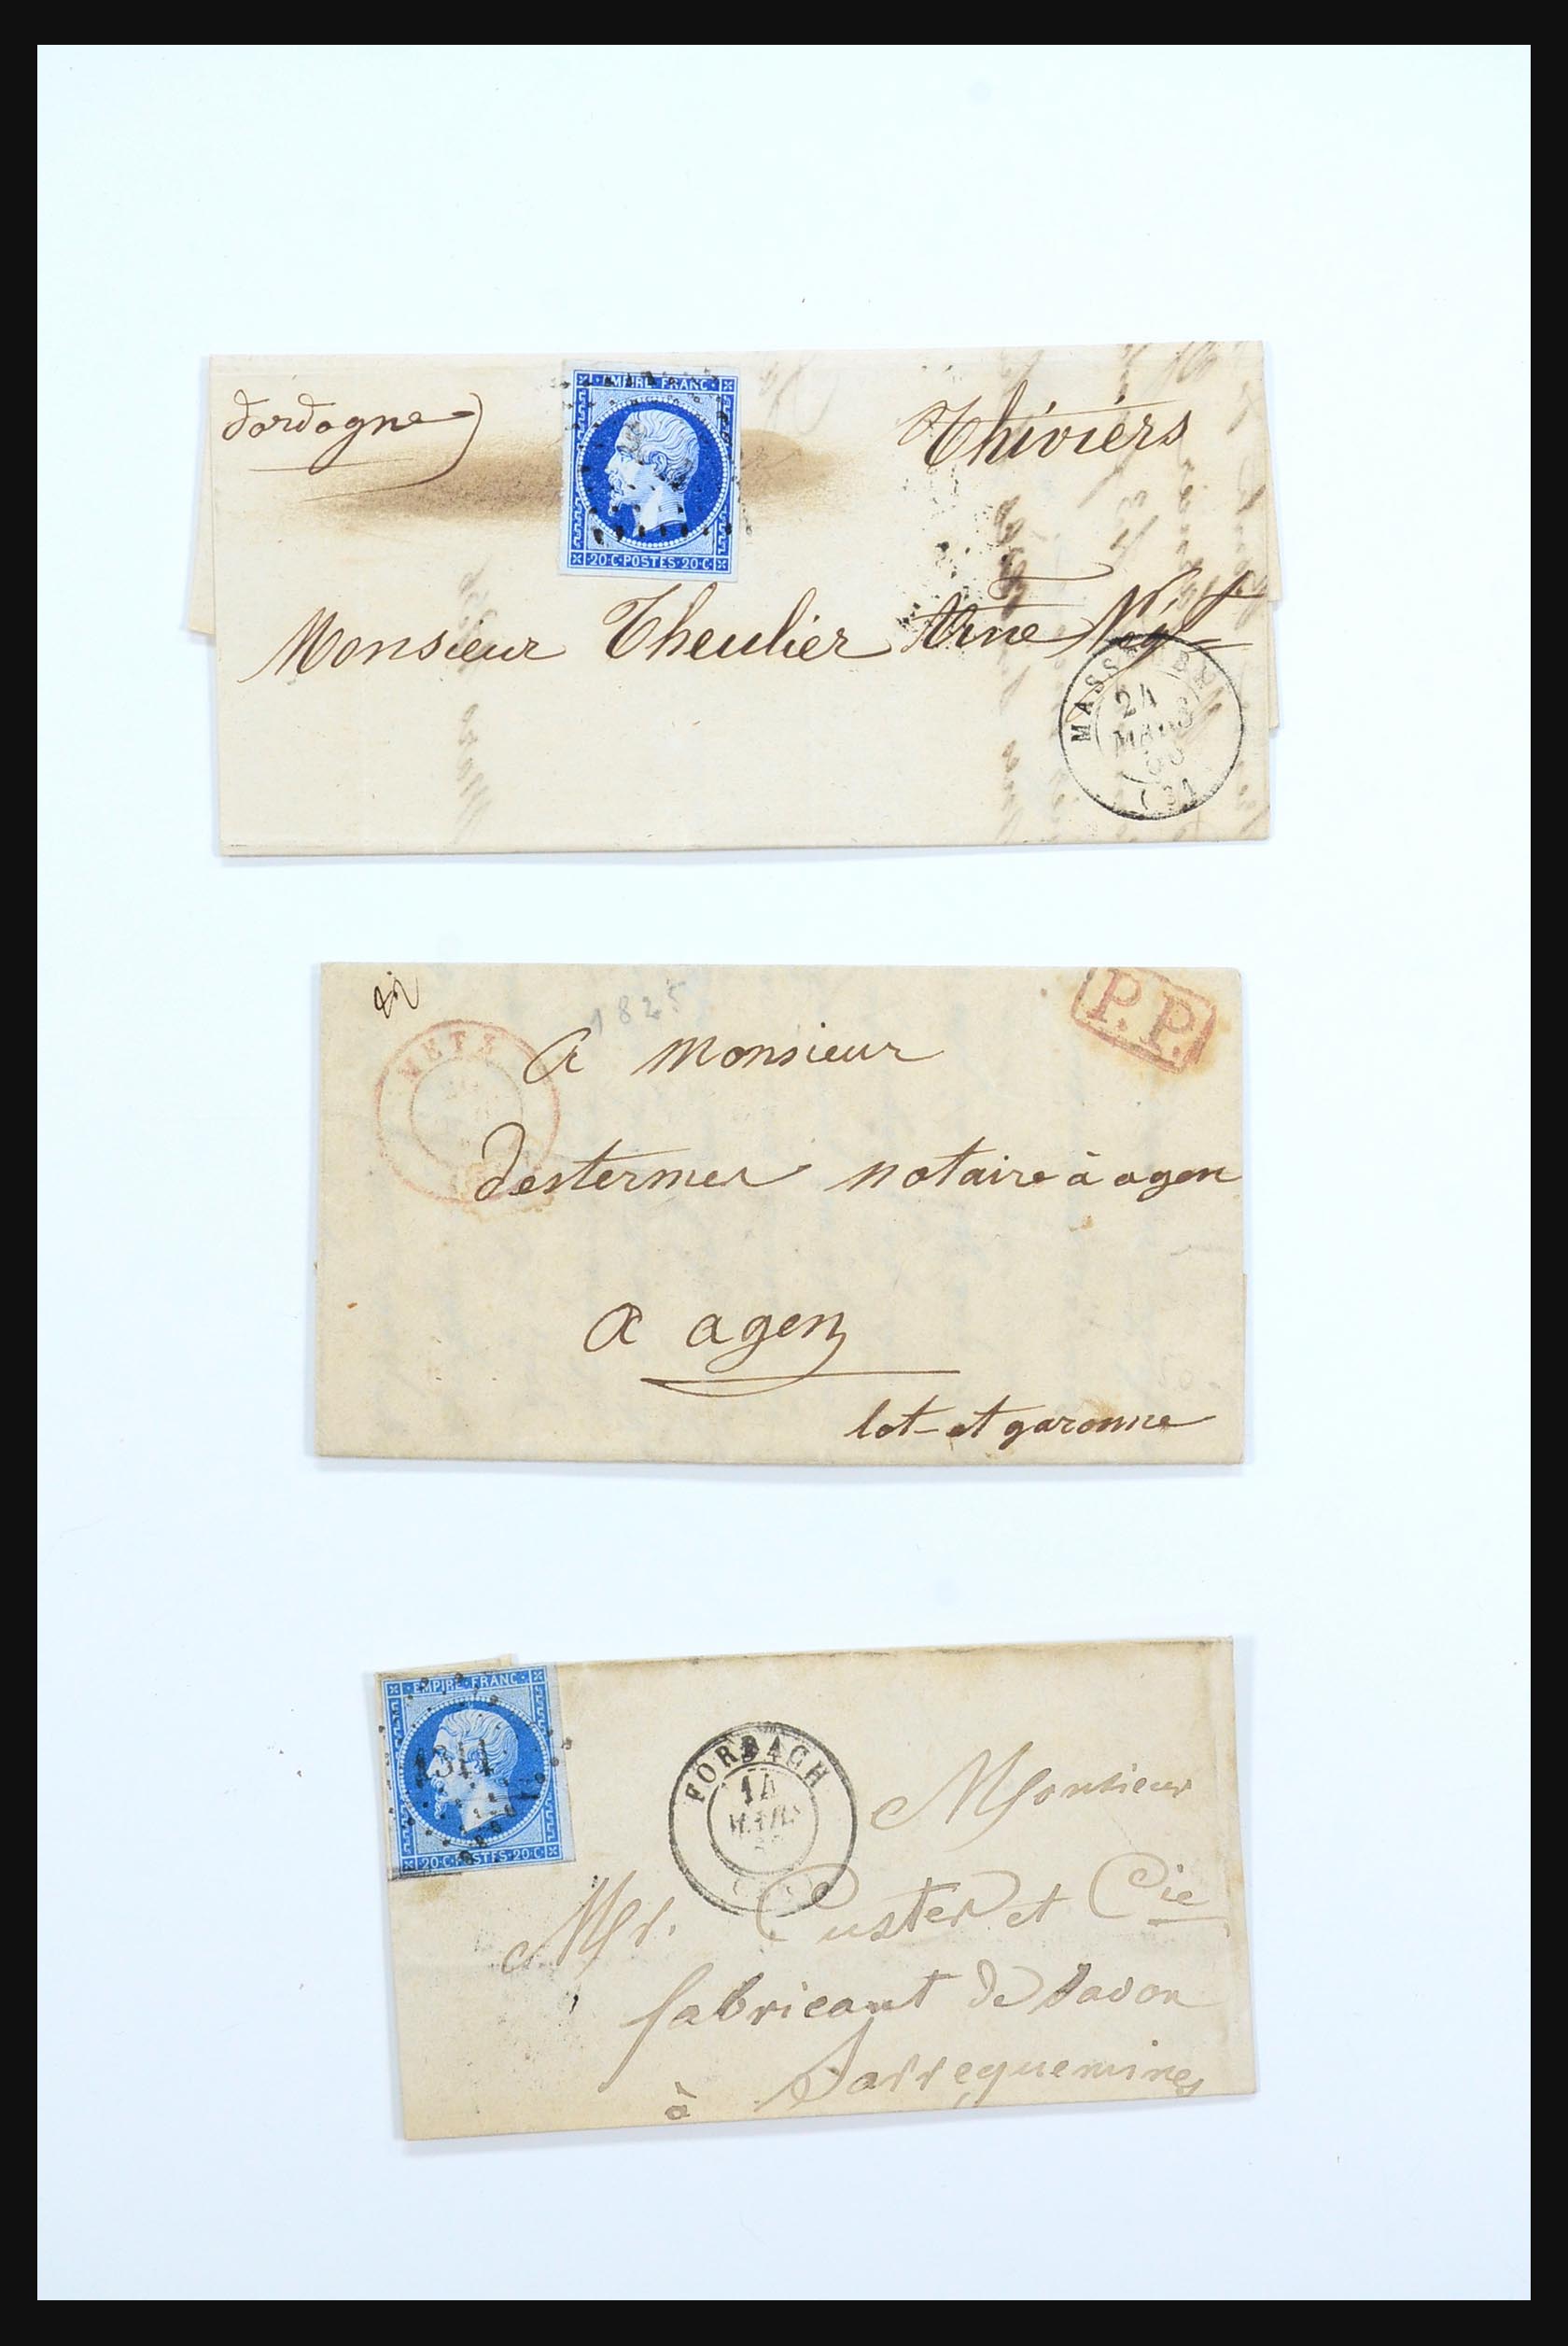 Dordogne)
EMPIRE FRANC
20·C·POSTES·20·C
Thiviers
Monsieur Theulier
24
MARS
1825
P.P.
METZ
A Monsieur
destermes notaire à agen
a agen
lot et garonne
EMPIRE·FRANC
20·C·POSTES·20·C
FORBACH
14
MARS
Monsieur
Mr. Custer et Cie
fabricant de Savon
à Sarreguemines